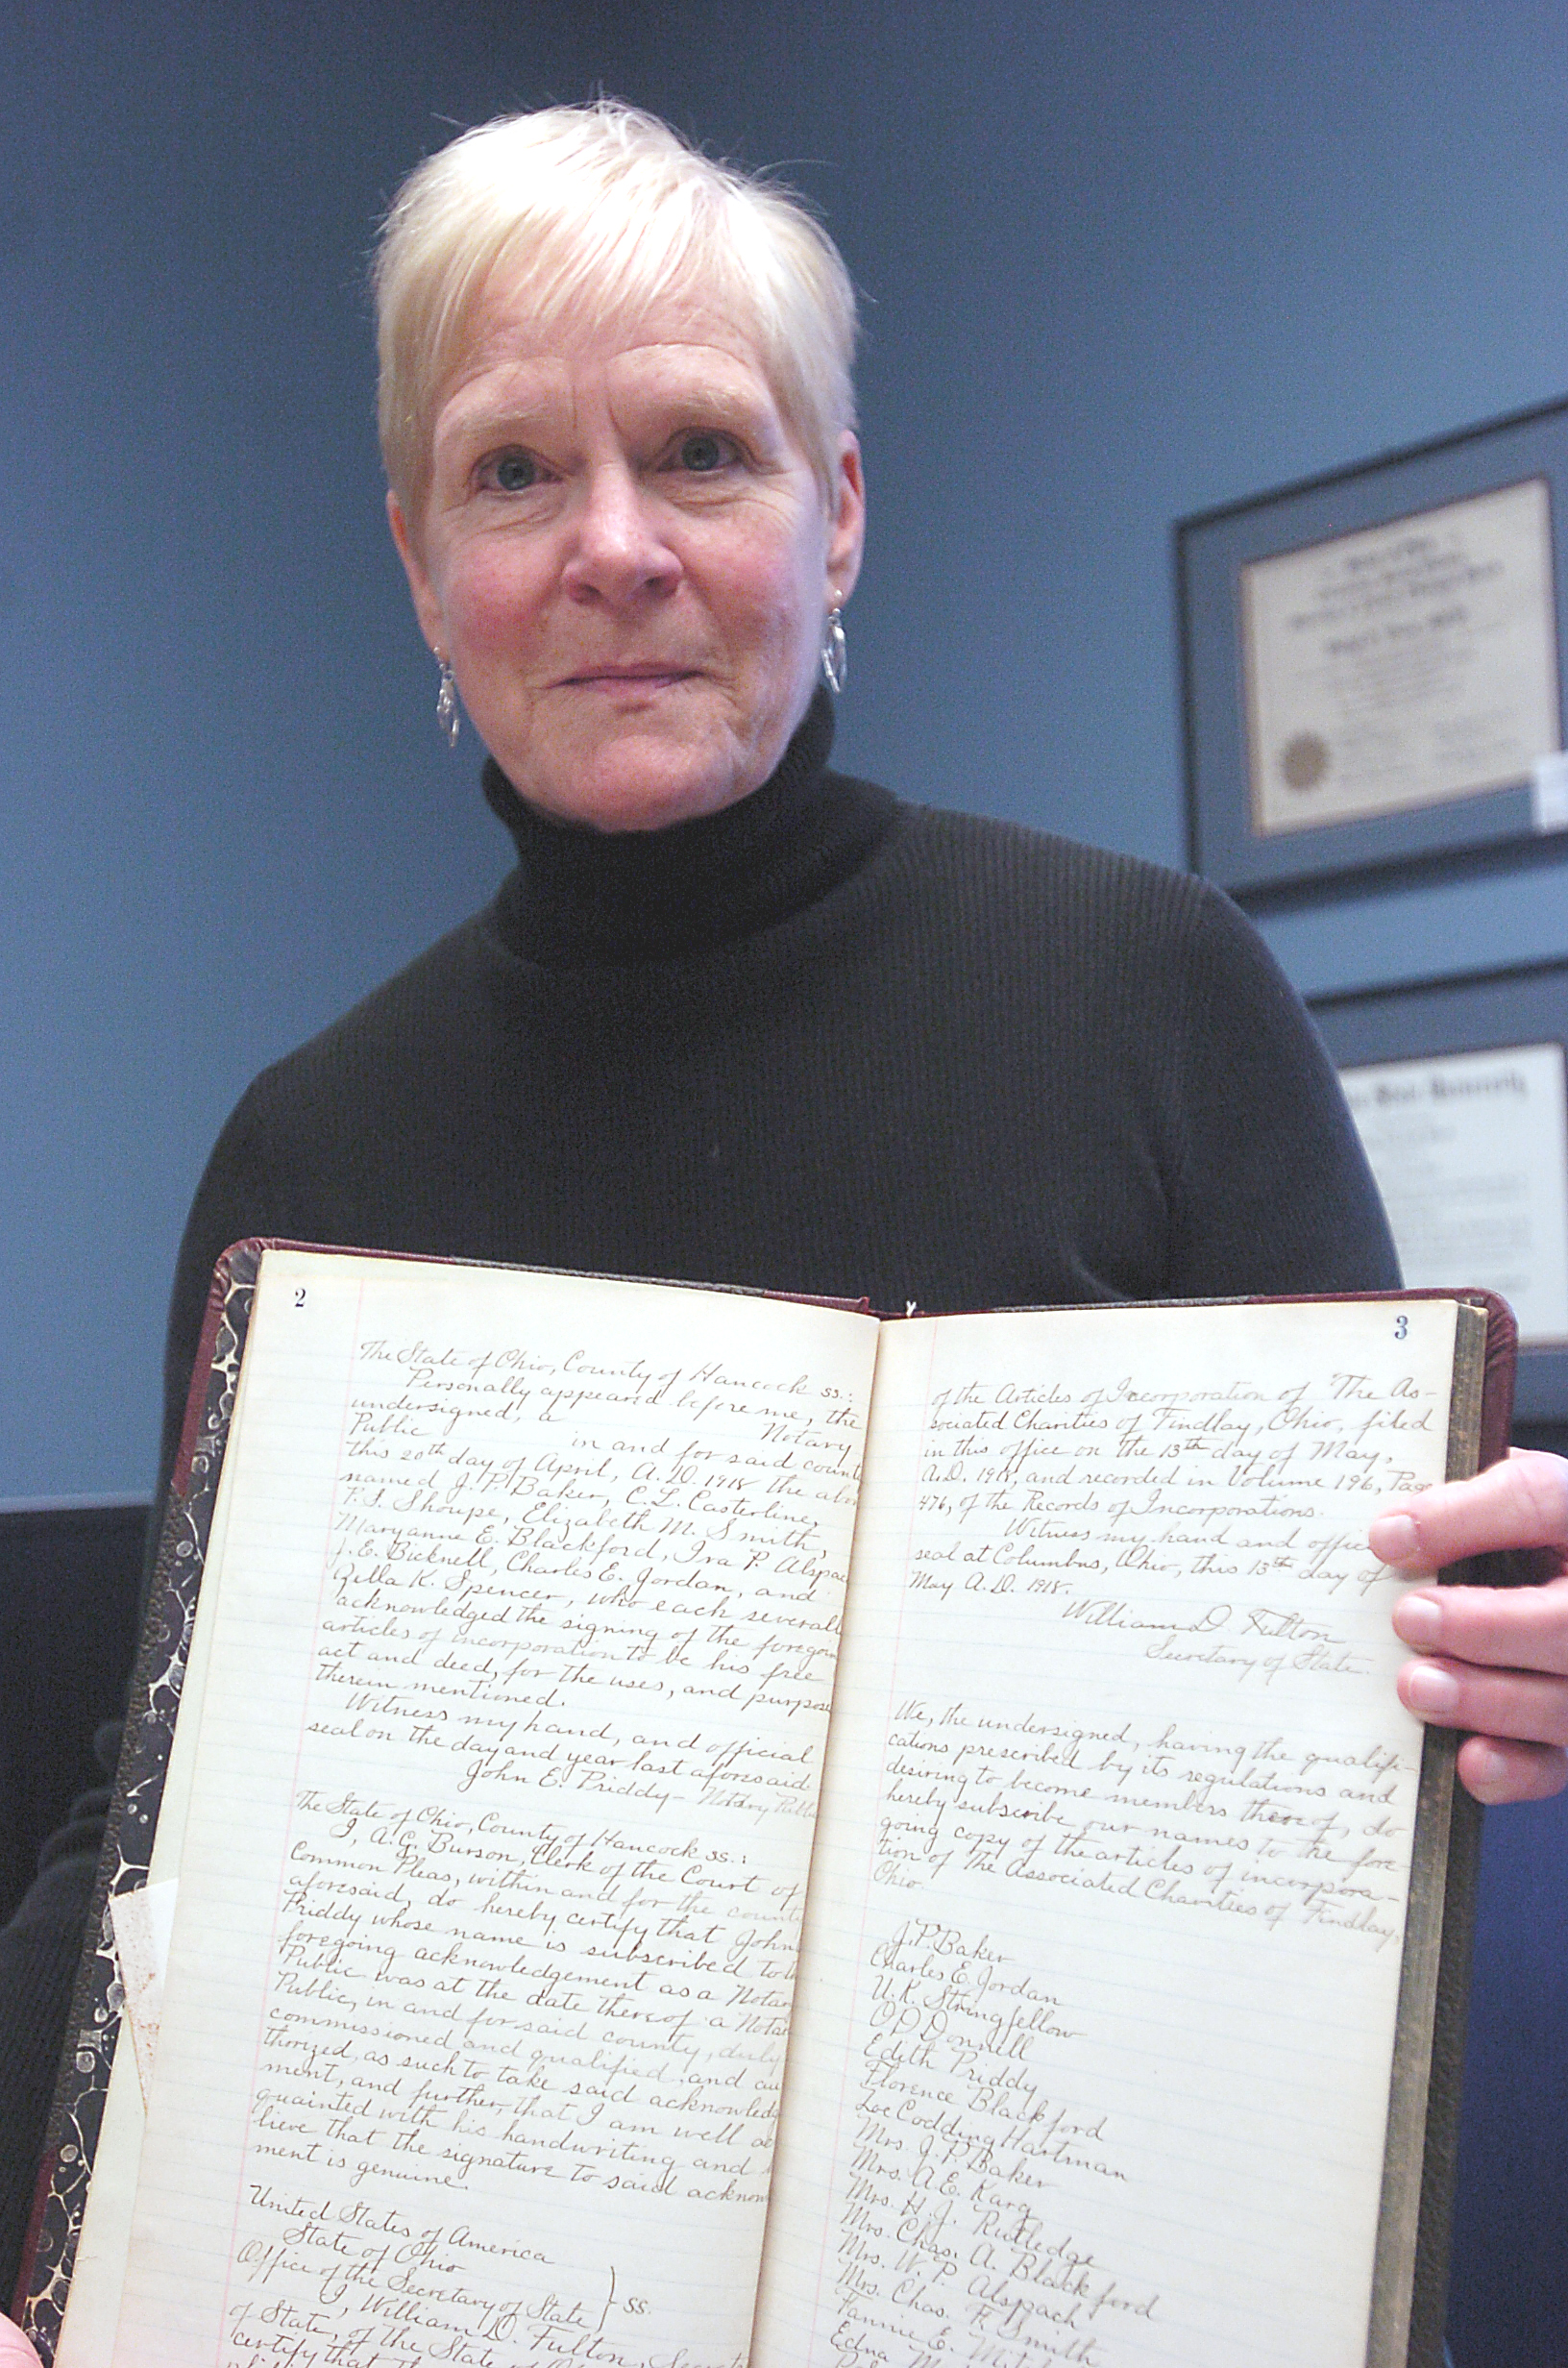 2
The State of Ohio, County of Hancock ss.:
Personally appeared before me, the
undersigned, a Notary
Public in and for said count
this 20th day of April, A.D. 1918 the abov
named J. P. Baker, C. L. Casterline,
F. S. Shoupe, Elizabeth M. Smith,
Maryanne E. Blackford, Ira P. Alspac
J. E. Bicknell, Charles E. Jordan, and
K. Spencer, who each severall
acknowledged the signing of the foregoin
articles of incorporation to be his free
act and deed, for the uses, and purpose
therein mentioned.
Witness my hand, and official
seal on the day and year last aforesaid.
John E. Priddy - Notary Public
The State of Ohio, County of Hancock ss.:
I, A. G. Burson, Clerk of the Court of
Common Pleas, within and for the county
aforesaid, do hereby certify that John
Priddy whose name is subscribed to th
foregoing acknowledgement as a Notar
Public was at the date thereof a Notar
Public, in and for said county, duly
commissioned and qualified, and au
thorized, as such to take said acknowledg
ment, and further, that I am well ac
quainted with his handwriting and
lieve that the signature to said acknow
ment is genuine.
United States of America
State of Ohio
Office of the Secretary of State } ss.
I, William D. Fulton, Secret
of State, of the State of Ohio
certify that
3
of the Articles of Incorporation of "The As-
sociated Charities of Findlay, Ohio, filed
in this office on the 13th day of May,
A.D. 1918, and recorded in Volume 196, Page
476, of the Records of Incorporations.
Witness my hand and offic
seal at Columbus, Ohio, this 13th day of
May A.D. 1918.
William D. Fulton
Secretary of State.
We, the undersigned, having the qualifi-
cations prescribed by its regulations and
desiring to become members thereof, do
hereby subscribe our names to the fore-
going copy of the articles of incorpora-
tion of The Associated Charities of Findlay,
Ohio.
J. P. Baker
Charles E. Jordan
U. K. Stringfellow
O D Donnell
Edith Priddy
Florence Blackford
Zoe Codding Hartman
Mrs. J. P. Baker
Mrs. A. E. Karg
Mrs. H. J. Rutledge
Mrs. Chas. A. Blackford
Mrs. W. P. Alspach
Mrs. Chas. F. Smith
Fannie E.
Edna